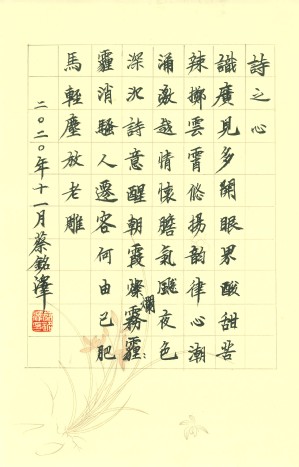 詩之心
識廣見多網眼界酸甜苦
辣擲雲霄悠揚韵律心潮
涌激越情懷膽氣飈夜色
深沉詩意醒朝霞燦爛霧霾
霾消騷人遷客何由已肥
馬輕塵放老雕
二〇二〇年十一月蔡銘澤